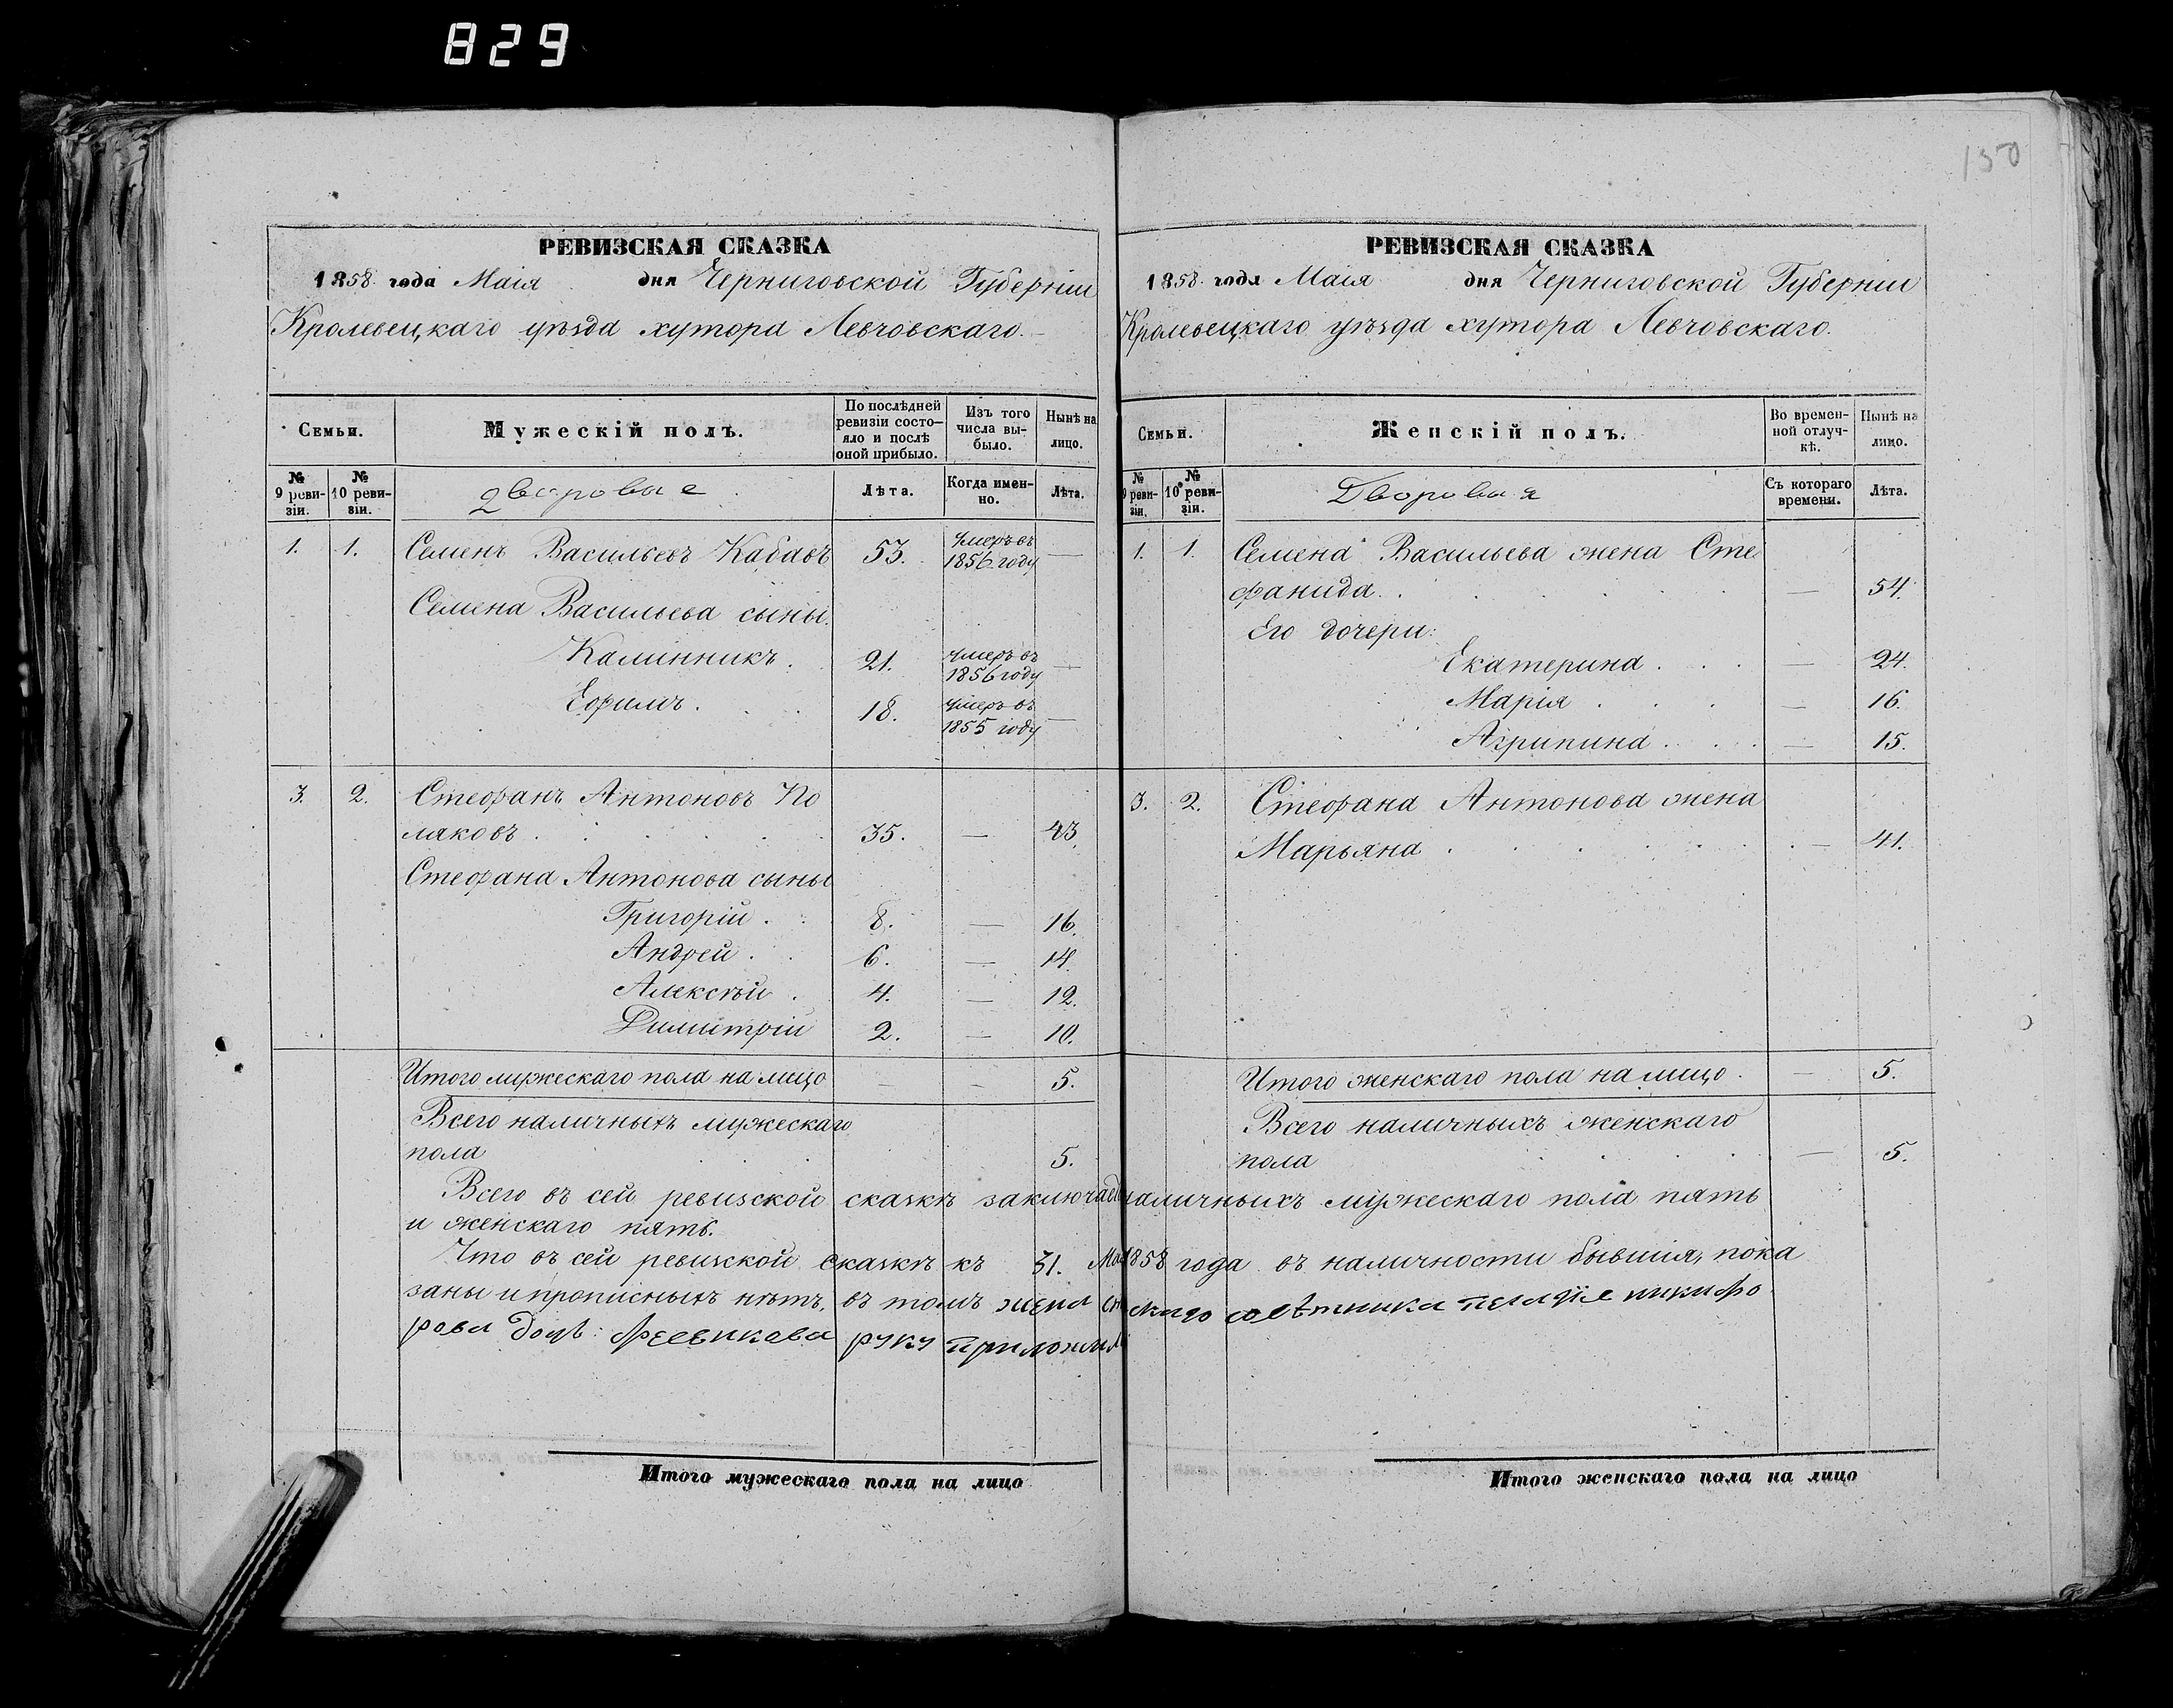 829
150
РЕВИЗСКАЯ СКАЗКА
1858 года Маія дня Черниговской Губерніи
Кролевецкаго уѣзда хутора Левчовскаго.
Семьи. Мужескій полъ. По послѣдней ревизіи состояло и послѣ оной прибыло. Изъ того числа выбыло. Нынѣ на лицо.
№ 9 ревизіи. № 10 ревизіи. дворовые Лѣта. Когда именно. Лѣта.
1. 1. Семенъ Васильевъ Кабавъ 53. умеръ въ 1856 году —
Семена Васильева сыны.
Калинникъ . 21. умеръ въ 1856 году —
Ефимъ . 18. умеръ въ 1855 году —
3. 2. Стефанъ Антоновъ По
ляковъ . 35. — 43.
Стефана Антонова сыны
Григорій . 8. — 16.
Андрей . 6. — 14.
Алексѣй . 4. — 12.
Димитрій 2. — 10.
Итого мужескаго пола на лицо — — 5.
Всего наличныхъ мужескаго
пола 5.
РЕВИЗСКАЯ СКАЗКА
1858 года Маія дня Черниговской Губерніи
Кролевецкаго уѣзда хутора Левчовскаго.
Семьи. Женскій полъ. Во временной отлучкѣ. Нынѣ на лицо.
№ 9 ревизіи. № 10 ревизіи. Дворовыя Съ котораго времени. Лѣта.
1. 1. Семена Васильева жена Сте
фанида. — 54.
Его дочери:
Екатерина . — 24.
Марія . — 16.
Агрипина . — 15.
3. 2. Стефана Антонова жена
Марьяна . — 41.
Итого женскаго пола на лицо . — 5.
Всего наличныхъ женскаго
пола — 5.
Всего въ сей ревизской сказкѣ наличныхъ мужескаго пола пять
и женскаго пять.
Что въ сей ревизской сказкѣ къ 31. 1858 года въ наличности бывшія, пока
заны и прописныхъ нѣтъ, въ томъ жена совѣтника никифо
рова руку
Итого мужескаго пола на лицо
Итого женскаго пола на лицо